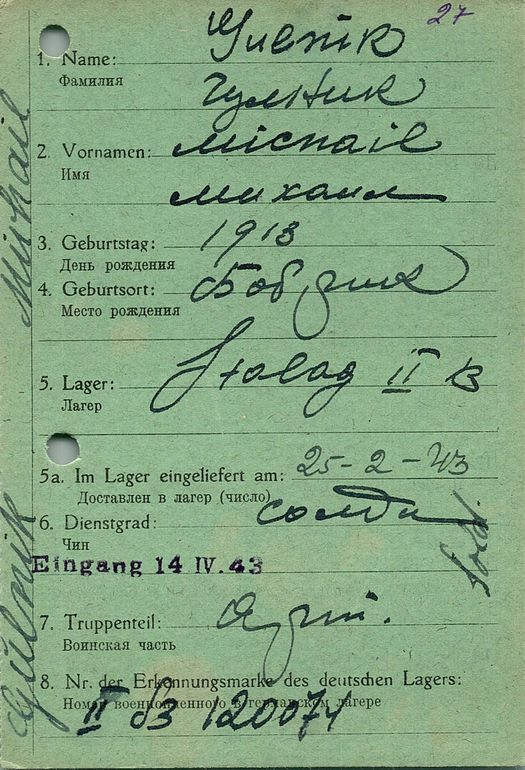 27
1. Name:
Фамилия
Гулник
2. Vornamen: Michail
Имя
Михаил
3. Geburtstag: 1913
День рождения
4. Geburtsort:
Место рождения
5. Lager: Stalag II B
Лагер
5a. Im Lager eingeliefert am: 25-2-43
Доставлен в лагер (число)
6. Dienstgrad: солдат
Чин
Sold.
Eingang 14 IV. 43
7. Truppenteil:
Воинская часть
8. Nr. der Erkennungsmarke des deutschen Lagers:
Номер военнопленного в германском лагере
II B 120074
Gulnik Michail